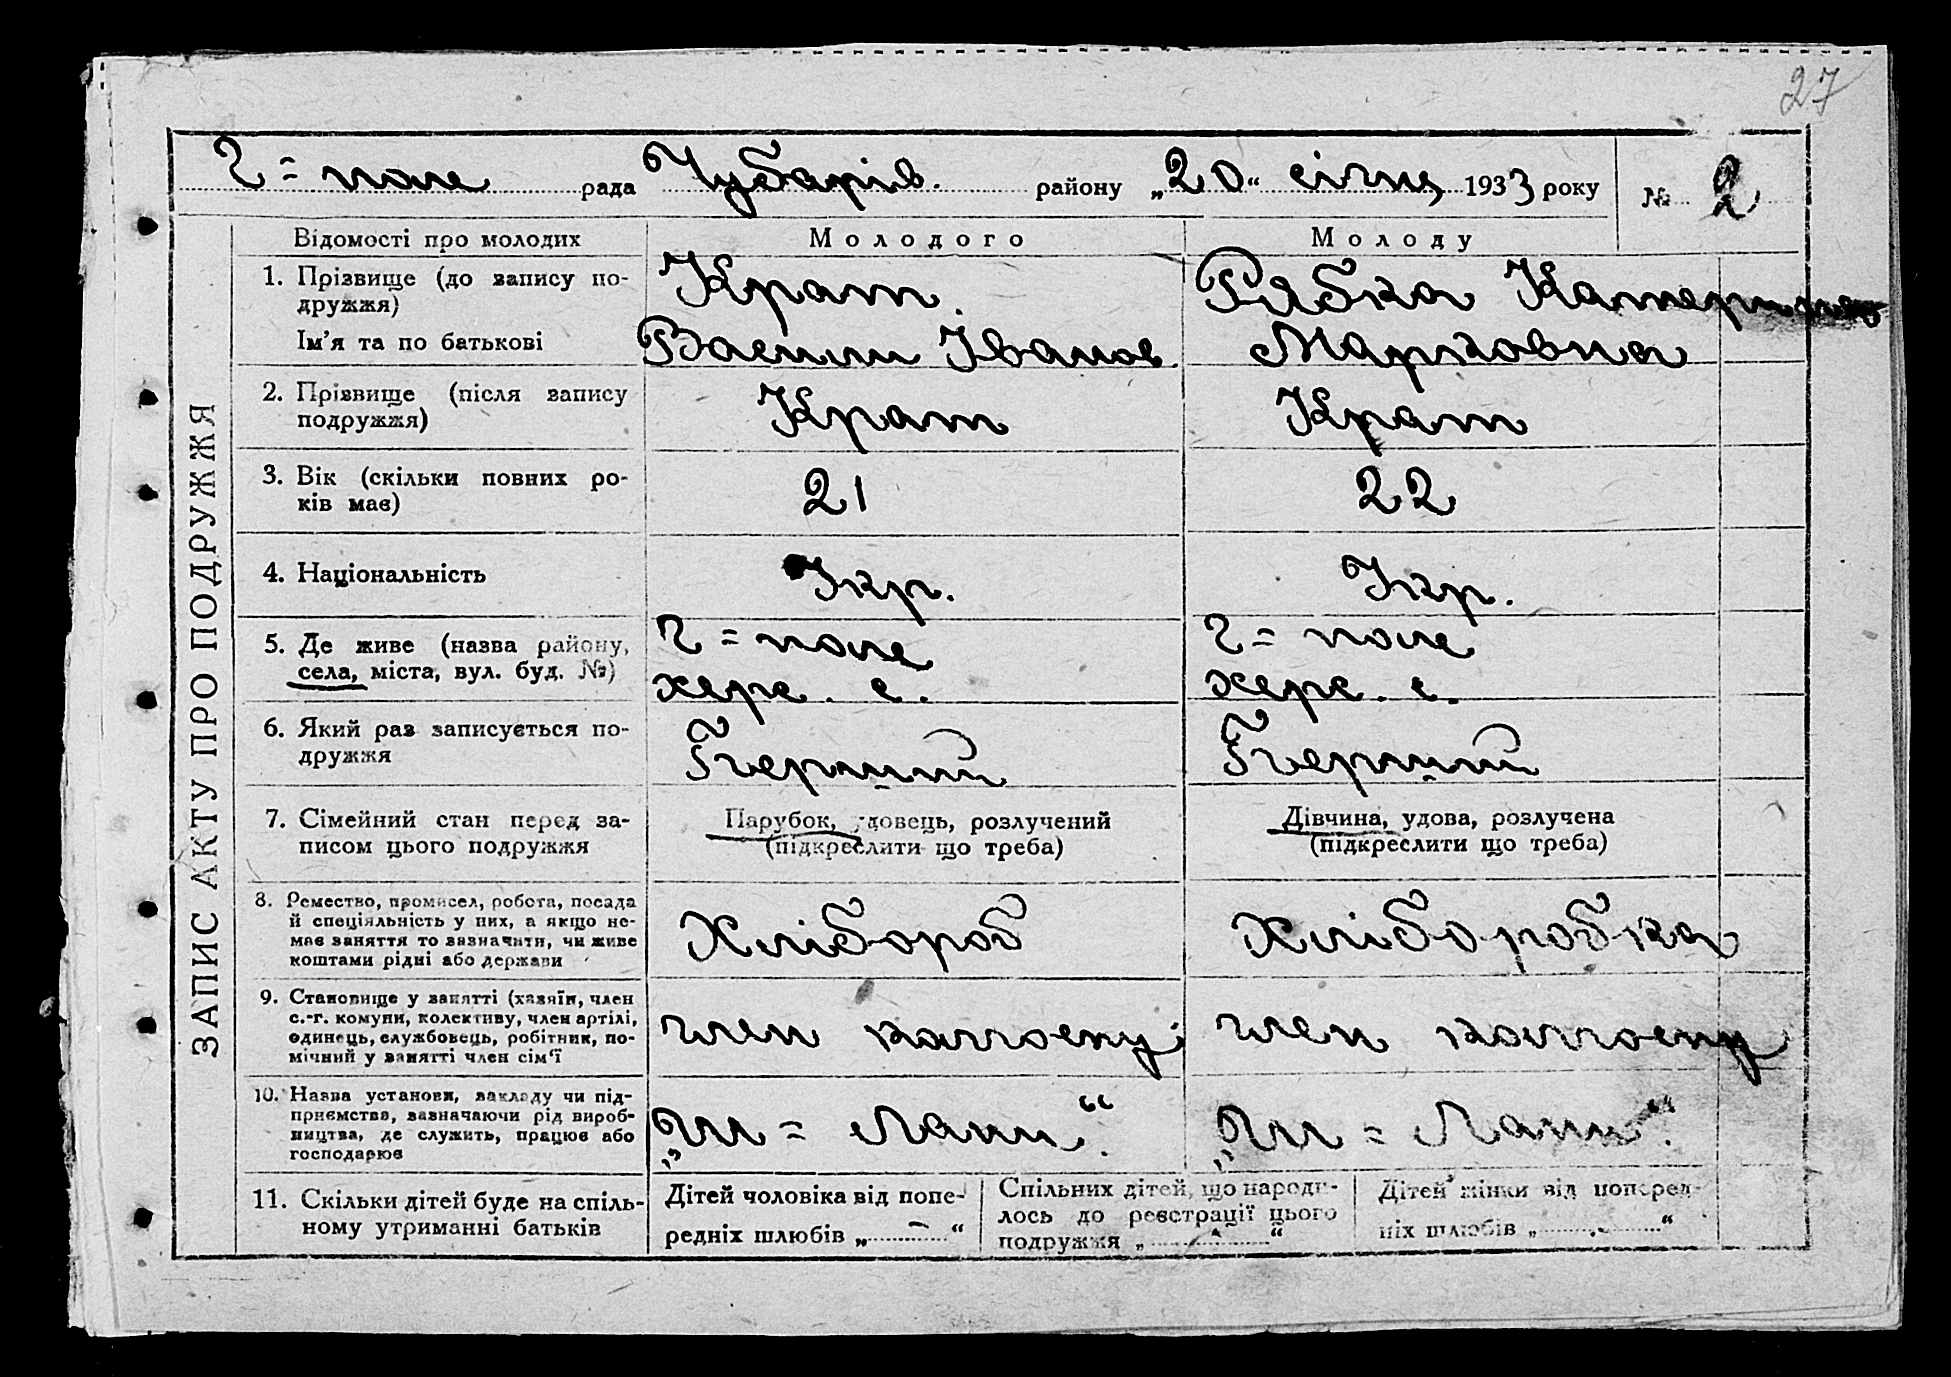 27
Г = поле рада Чубарів. району „20“ січня 1933 року № 2
ЗАПИС АКТУ ПРО ПОДРУЖЖЯ
Відомості про молодих
Молодого
Молоду
1. Прізвище (до запису по-
дружжя)
Ім'я та по батькові
Крат.
Василь Іванов.
Рябка Катерина
Марковна
2. Прізвище (після запису
подружжя)
Крат
Крат
3. Вік (скільки повних ро-
ків має)
21
22
4. Національність
Укр.
Укр.
5. Де живе (назва району,
села, міста, вул. буд. №)
Г = поле
херс. с.
Г = поле
херс. с.
6. Який раз записується по-
дружжя
Перший
Перший
7. Сімейний стан перед за-
писом цього подружжя
Парубок, удовець, розлучений
(підкреслити що треба)
Дівчина, удова, розлучена
(підкреслити що треба)
8. Ремество, промисел, робота, посада
й спеціяльність у них, а якщо не-
має заняття то зазначити, чи живе
коштами рідні або держави
Хлібороб
Хлібо робка
9. Становище у занятті (хазяїн, член
с.-г. комуни, колективу, член артілі,
одинець, службовець, робітник, по-
мічний у занятті член сім'ї
член колгоспу
член колгоспу
10. Назва установи, закладу чи під-
приємства, зазначаючи рід вироб-
ництва, де служить, працює або
господарює
= Лани“.
= Лани“.
11. Скільки дітей буде на спіль-
ному утриманні батьків
Дітей чоловіка від попе-
редніх шлюбів „ — “
Спільних дітей, що народи-
лось до реєстрації цього
подружжя „ “
Дітей жінки від поперед-
ніх шлюбів „ “